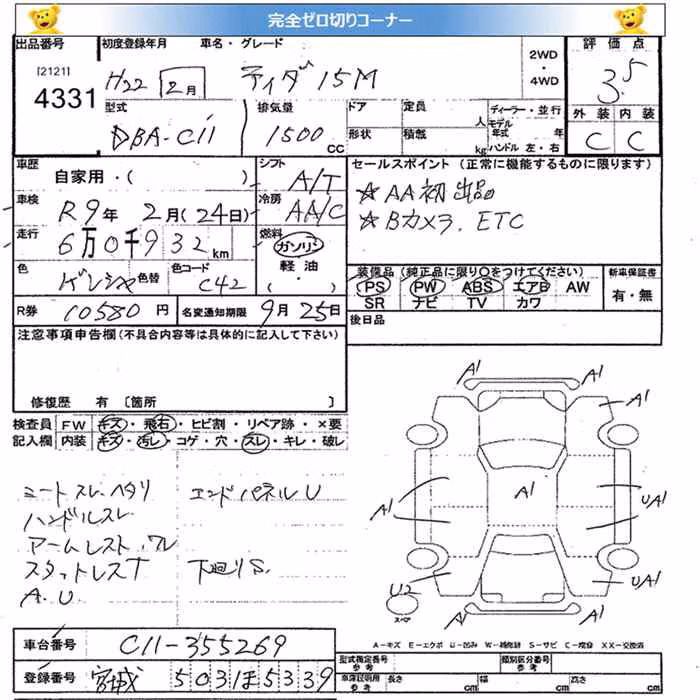 完全ゼロ切りコーナー
出品番号 初度登録年月 車名・グレード 2WD ・ 4WD 評価点
[2121] 4331 H22 2月 ティダ 15M 3.5
型式 排気量 ドア 定員 人 ディーラー・並行 外装 内装
DBA-C11 1500 CC 形状 積載 kg モデル年式 年 ハンドル 左・右 C C
車歴 自家用・( ) シフト A/T セールスポイント (正常に機能するものに限ります)
車検 R9年 2月(24日) 冷房 AA/C ☆AA初出品
走行 6万0千932km 燃料 ガソリン ☆Bカメラ. ETC
軽油 ( ・ )
色 色替 色コード C42 装備品 (純正品に限り○をつけてください) 新車保証書
PS PW ABS エアB AW 有・無
SR ナビ TV カワ
R券 10580円 名変通知期限 9月25日 後日品
注意事項申告欄(不具合内容等は具体的に記入して下さい)
修復歴 有 〔箇所 〕
検査員 FW キズ・飛石・ヒビ割・リペア跡・×要
記入欄 内装 キズ・汚レ・コゲ・穴・スレ・キレ・破レ
A1 A1
A1 A1
A1 A1 UA1
A1 UA1
U2 UA1
スペア
A1 A1
シートスレ.ヘタリ エンドパネルU
ハンドルスレ
アームレスト.ワレ
スタットレスT 下廻りS.
A.U
A-キズ E-エクボ U-凹み W-補修跡 S-サビ C-腐食 XX-交換済
車台番号 C11-355269
型式指定番号 参考 類別区分番号 参考
登録番号 宮城 503 ほ 5339
車庫証明用 参考 長さ cm 幅 cm 高さ cm